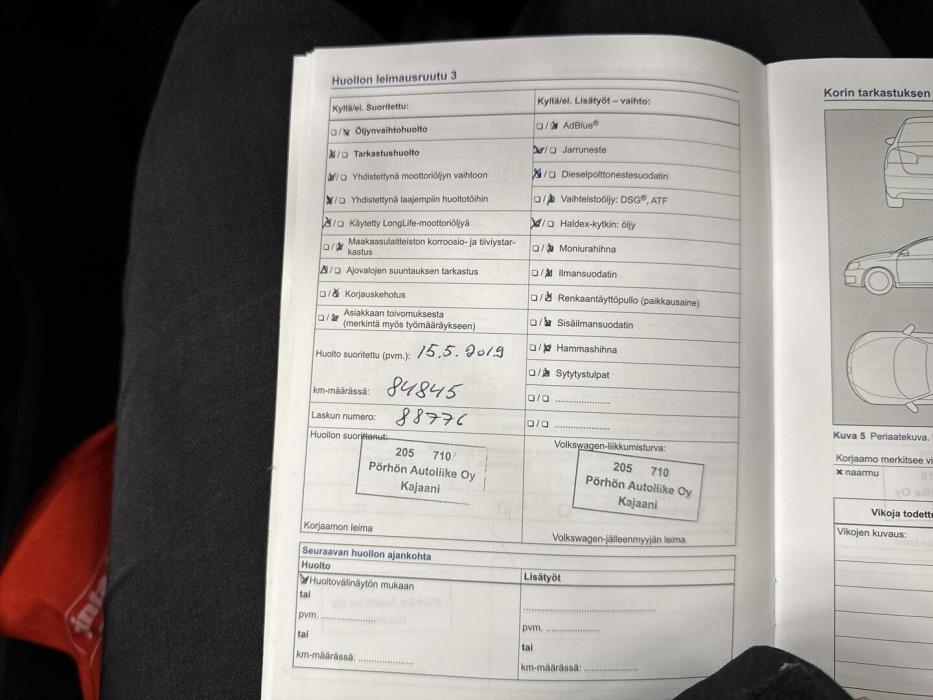 Huollon leimausruutu 3
Kyllä/ei. Suoritettu:
☐/☒ Öljynvaihtohuolto
☒/☐ Tarkastushuolto
☒/☐ Yhdistettynä moottoriöljyn vaihtoon
☒/☐ Yhdistettynä laajempiin huoltotöihin
☒/☐ Käytetty LongLife-moottoriöljyä
☐/☒ Maakaasulaitteiston korroosio- ja tiiviystar-
kastus
☒/☐ Ajovalojen suuntauksen tarkastus
☐/☒ Korjauskehotus
☐/☒ Asiakkaan toivomuksesta
(merkintä myös työmääräykseen)
Huolto suoritettu (pvm.): 15.5.2019
km-määrässä: 84845
Laskun numero: 88776
Huollon suorittanut:
205 710
Pörhön Autoliike Oy
Kajaani
Korjaamon leima
Kyllä/ei. Lisätyöt – vaihto:
☐/☒ AdBlue®
☒/☐ Jarruneste
☒/☐ Dieselpolttonestesuodatin
☐/☒ Vaihteistoöljy: DSG®, ATF
☒/☐ Haldex-kytkin: öljy
☐/☒ Moniurahihna
☐/☒ Ilmansuodatin
☐/☒ Renkaantäyttöpullo (paikkausaine)
☐/☒ Sisäilmansuodatin
☐/☒ Hammashihna
☐/☒ Sytytystulpat
☐/☐ ....................
☐/☐ ....................
Volkswagen-liikkumisturva:
205 710
Pörhön Autoliike Oy
Kajaani
Volkswagen-jälleenmyyjän leima
Seuraavan huollon ajankohta
Huolto
☒ Huoltovälinäytön mukaan
tai
pvm. ....................
tai
km-määrässä: ....................
Lisätyöt
................................................
pvm. ....................
tai
km-määrässä: ....................
Korin tarkastuksen
Kuva 5 Periaatekuva.
Korjaamo merkitsee
× naarmu
Vikoja
Vikojen kuvaus: